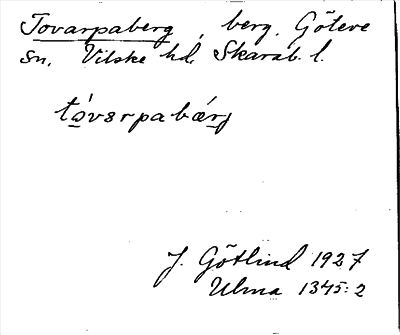 Tovarpaberg, berg. Göteve
sn. Vilske hd. Skarab. l.
tóvɜrpabǽrj
J. Götlind 1927
Ulma 1345:2